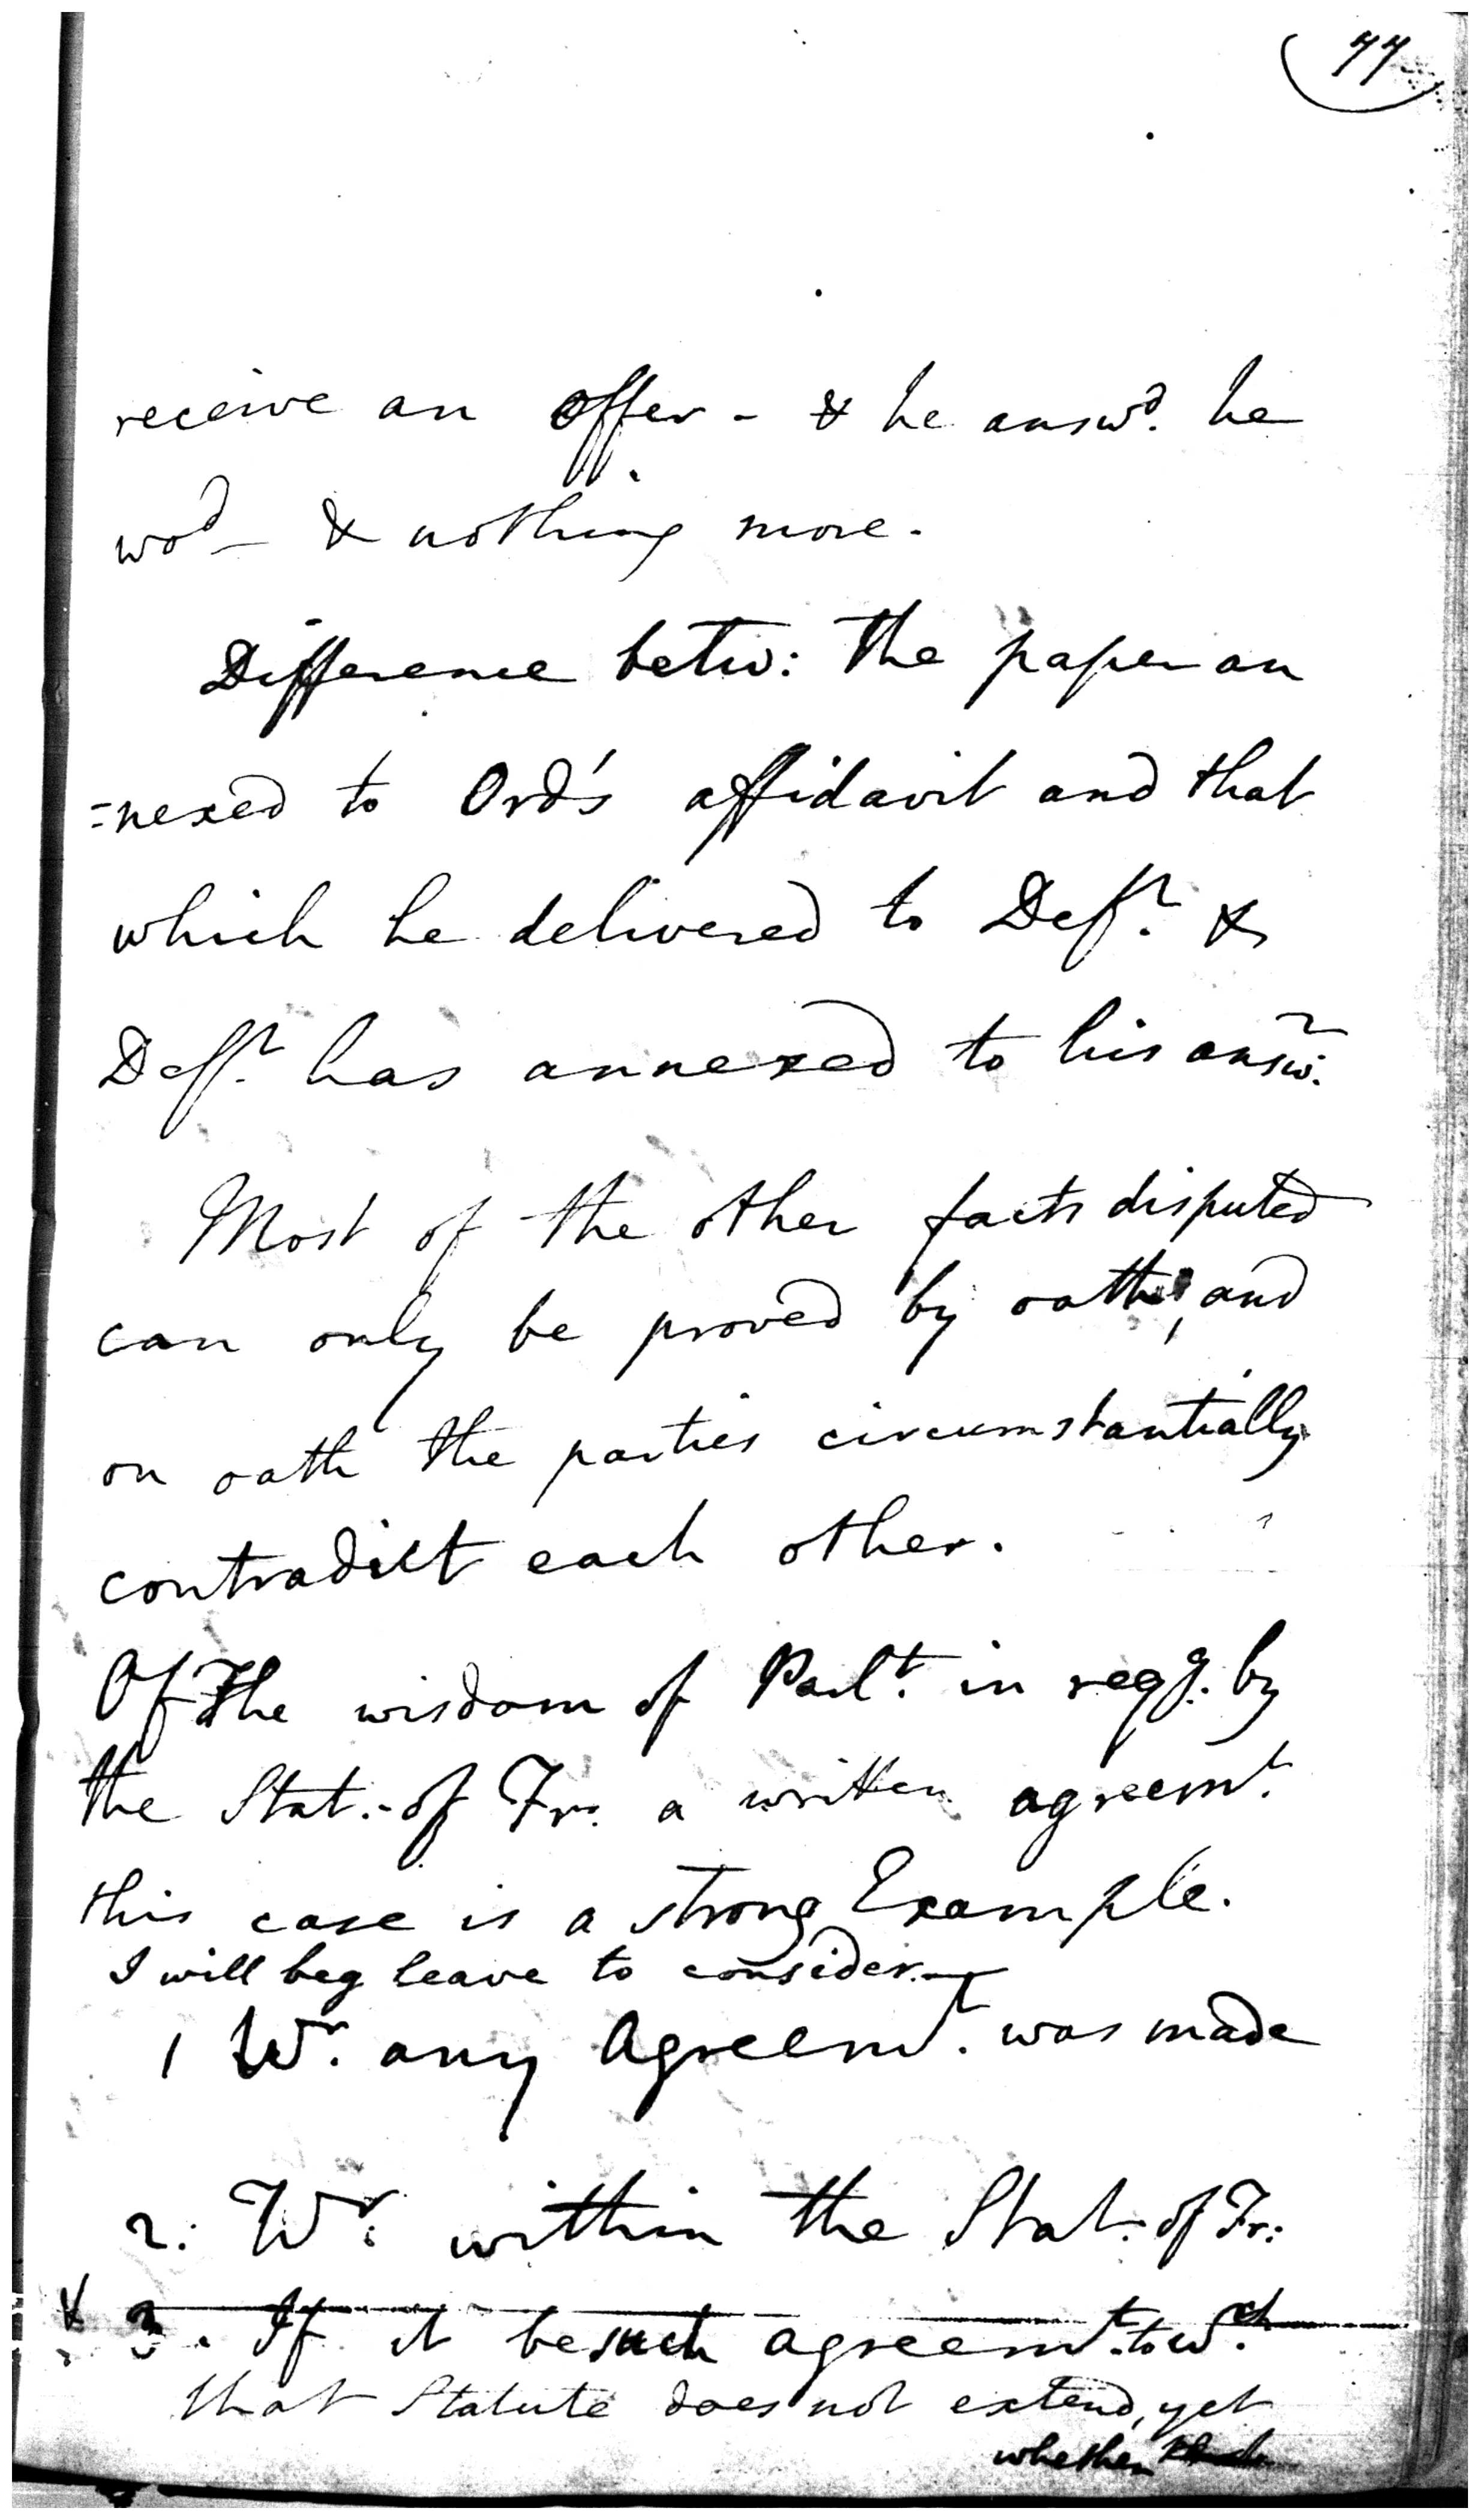 44
receive an offer - & he answd. he
wod - & nothing more.
Difference betw: the paper an
=nexed to Ord's affidavit and that
which he delivered to Deft. &
Deft. has annexed to his answr.
Most of the other facts disputed
can only be proved by oath, and
on oath the parties circumstantially
contradict each other.
Of the wisdom of Parlt. in reqg. by
the Stat. of Fr. a written agreemt.
this case is a strong Example.
I will beg leave to consider. -
1 Wr. any Agreemt. was made
2: Wr. within the Stat. of Fr:
3. If it be such agreemt. to wch.
that Statute does not extend, yet
whether